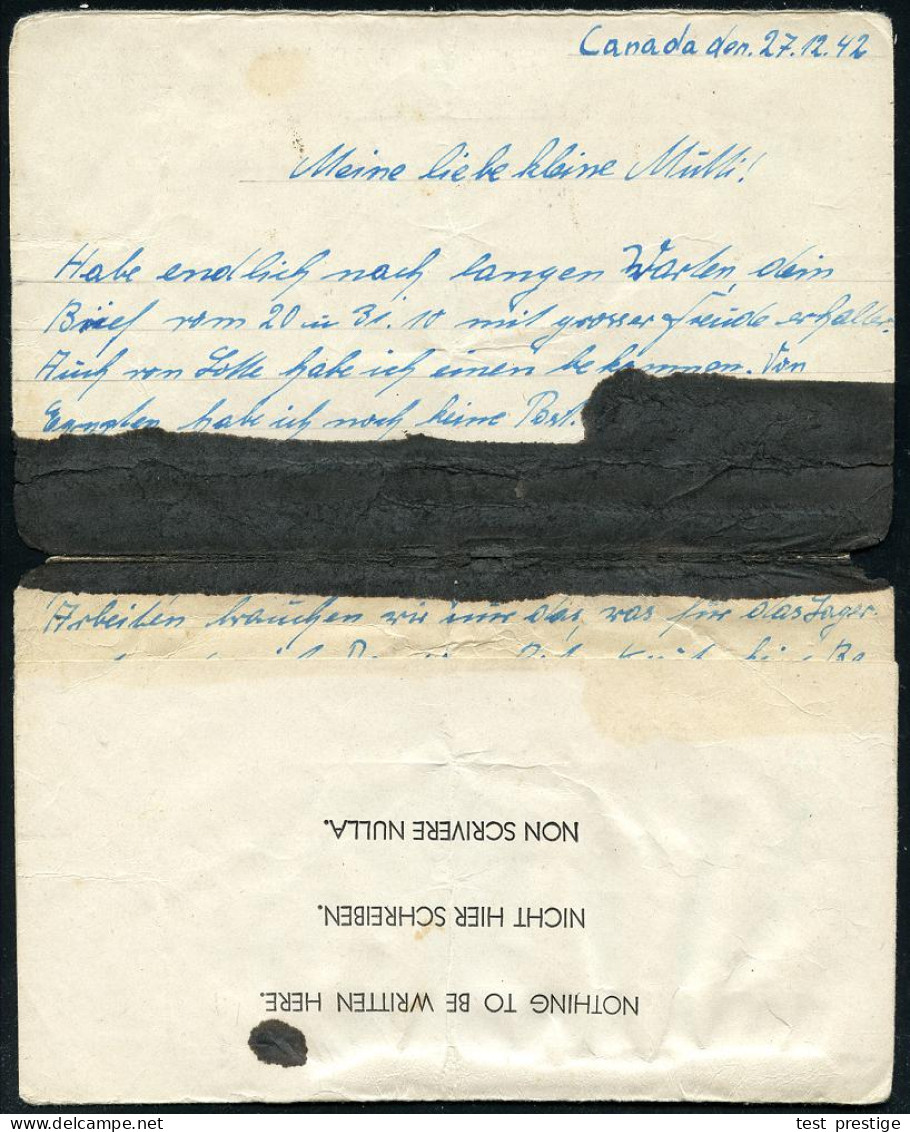 Canada den. 27.12.42
Meine liebe kleine Mutti!
Habe endlich nach langen Warten dein
Brief vom 20 u 31.10 mit grosser Freude erhalten.
Auch von Lotte habe ich einen bekommen. Von
Egypten habe ich noch keine Post.
Arbeiten brauchen wir nur das, was für das Lager
NON SCRIVERE NULLA.
NICHT HIER SCHREIBEN.
NOTHING TO BE WRITTEN HERE.
test prestige